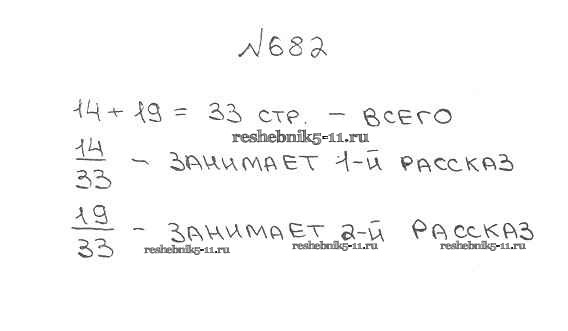 №682
14 + 19 = 33 стр. – всего
reshebnik5-11.ru
14/33 – занимает 1-й рассказ
19/33 – занимает 2-й рассказ
reshebnik5-11.ru reshebnik5-11.ru reshebnik5-11.ru